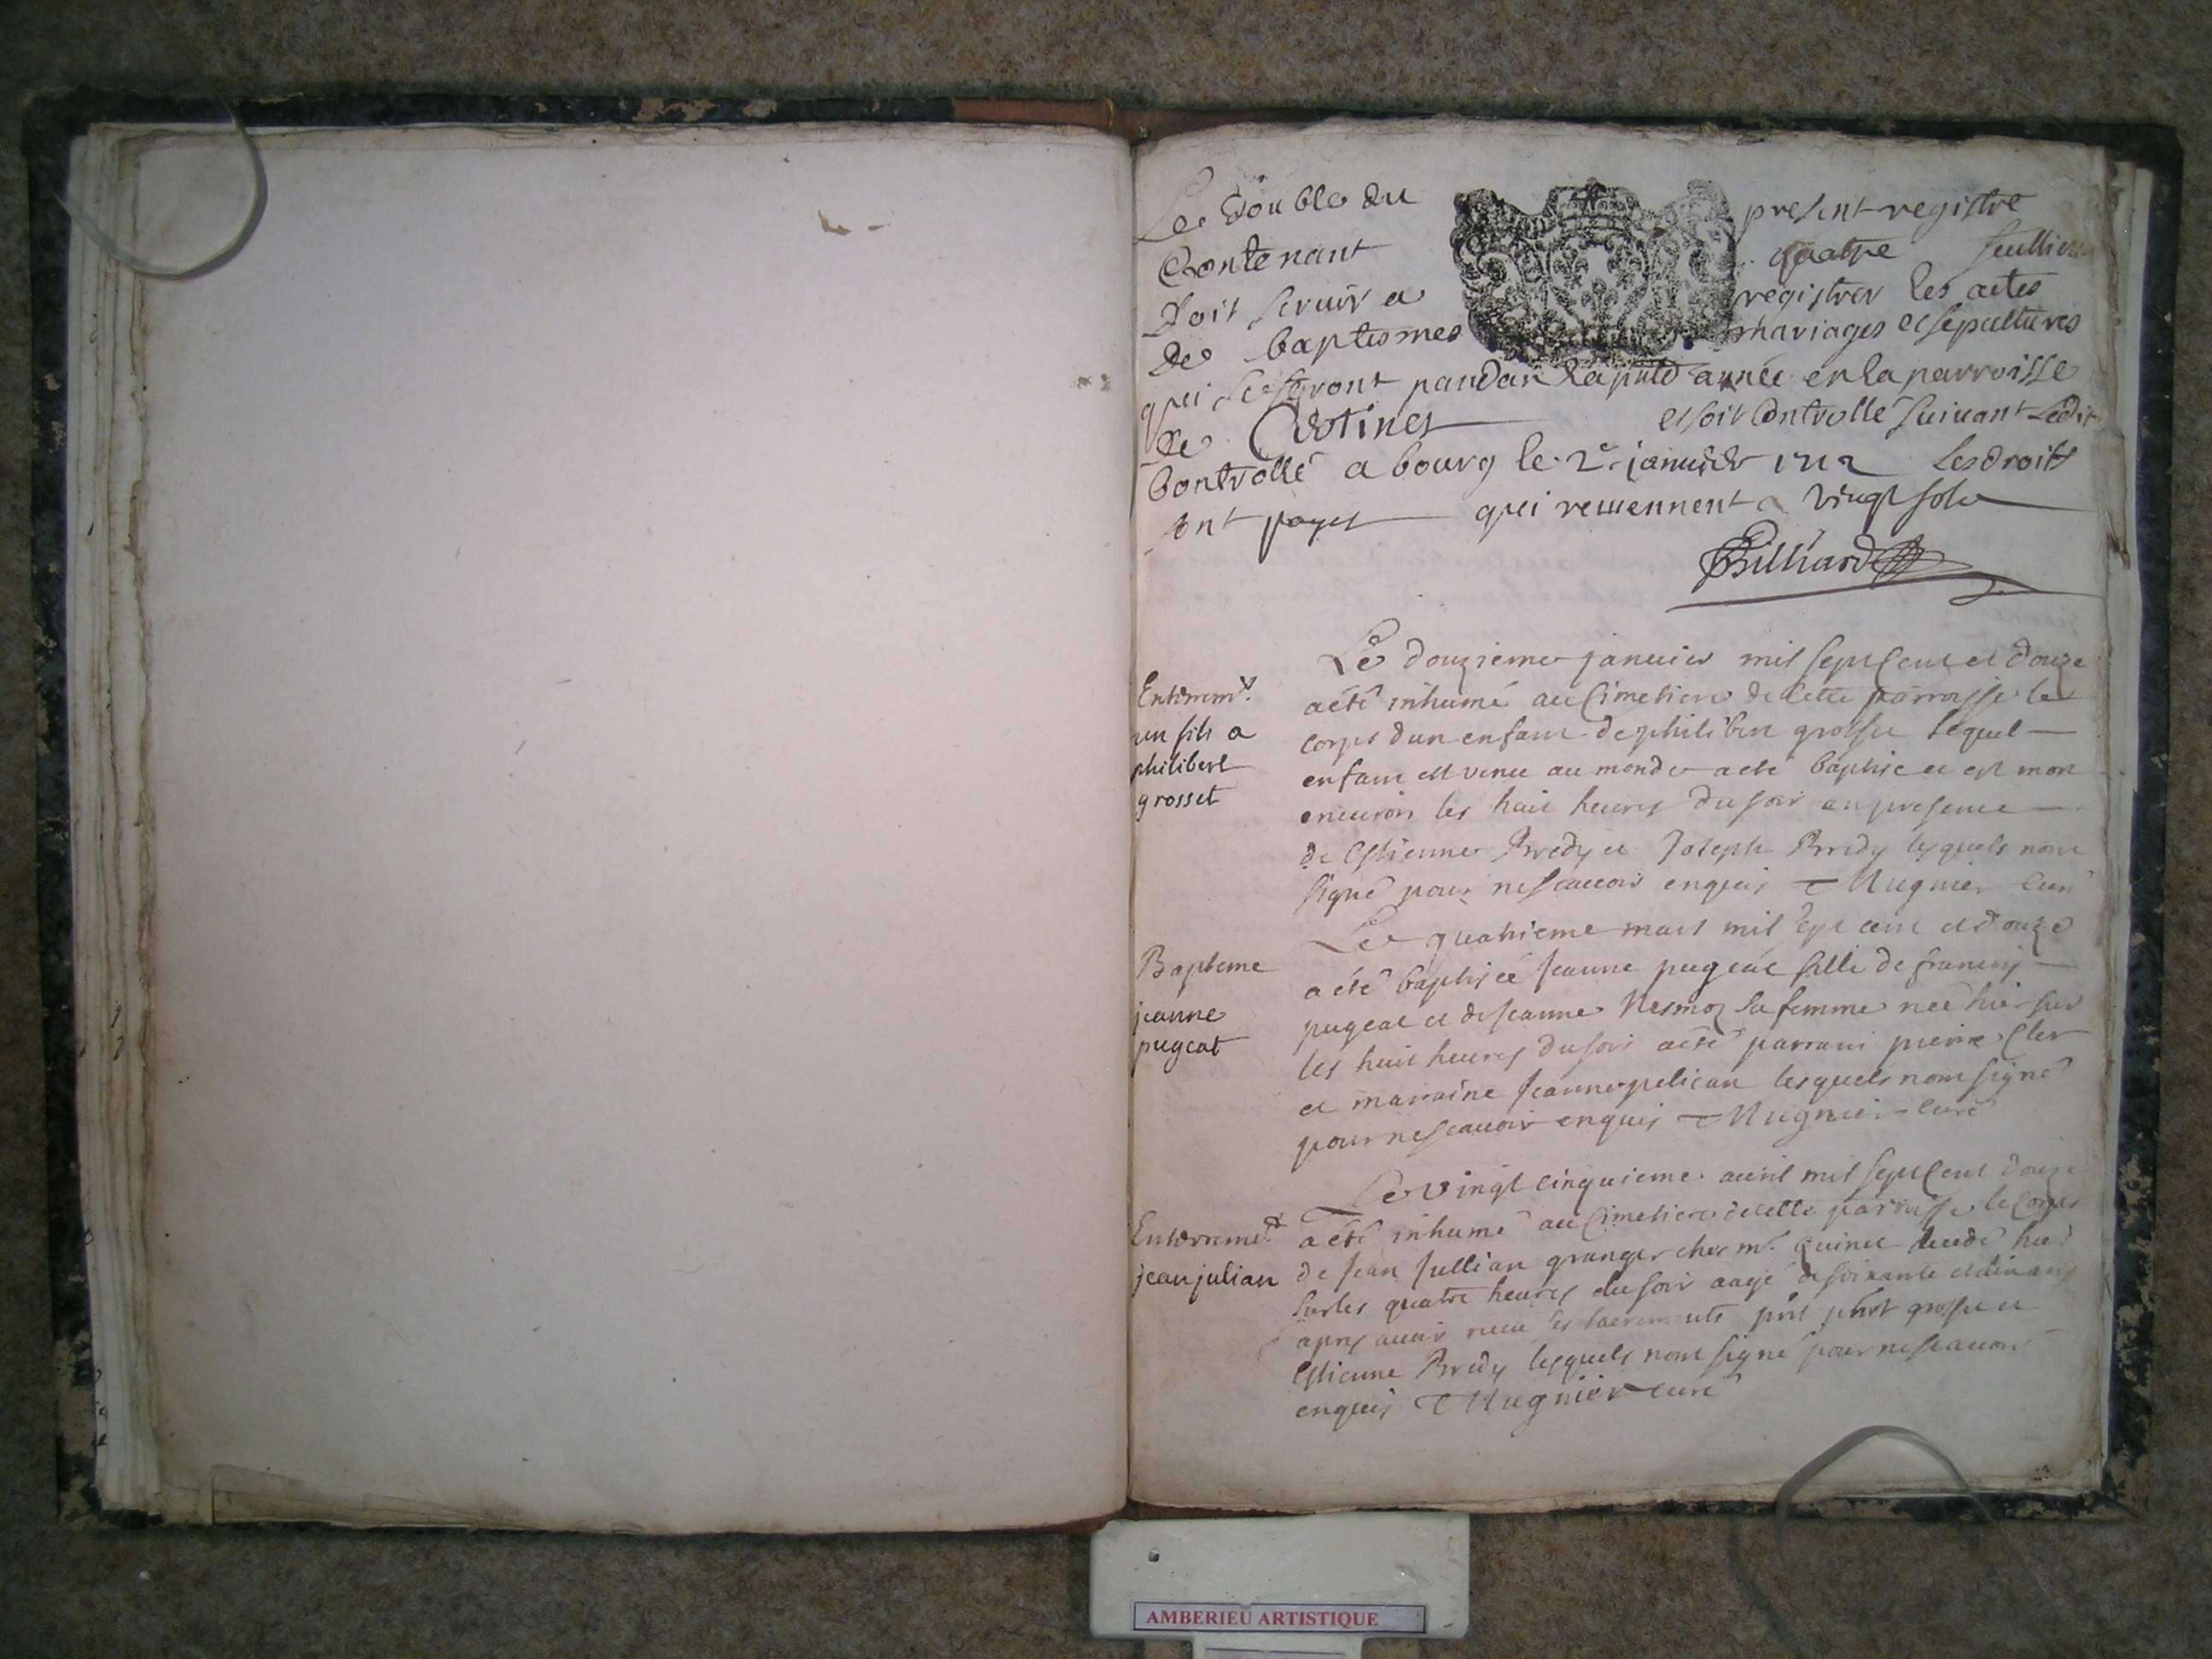 Le double du present registre
Contenant quatre feulliers
Doit servir a registrer les actes
De baptesmes mariages et sepultures
qui se feront pandan la pnte année en la parroisse
De
et soit Controllé suivant Ledit
Controllé a bourg le 2e janvier 1712 Les droits
ont payes qui reviennent a vingt sols
Billiard
Enterremt.
un fils a
philibert
grosset
Le douzieme januier mil sept Cent et douze
a eté inhumé au Cimetiere de Cette parroisse le
corps dun enfant de philibert grosset lequel
enfant est venu au monde a eté baptisé et est mort
enuiron les huit heures du soir en presence
de Estienne Bredy et Joseph Bredy lesquels nont
signé pour ne scauoir enquis Mugnier Curé
Bapteme
jeanne
pugeat
Le quatrieme mars mil sept cent et douze
a eté baptisée Jeanne pugeat fille de francois
pugeat et de Jeanne Nesmoz sa femme née hier sur
les huit heures du soir a eté parrain pierre Cler
et marraine Jeanne pelican lesquels nont signé
pour ne scauoir enquis Mugnier Curé
Enterremt.
jean julian
Le vingt cinquieme auril mil sept Cent douze
a eté inhumé au Cimetiere de cette parroisse le Corps
de Jean Jullian granger ches mr. quinet decedé hier
sur les quatre heures du soir aagé de soixante et dix ans
apres auoir receu les sacrements pnt phbt grosset et
Estienne Bredy lesquels nont signé pour ne scauoir
enquis Mugnier curé
AMBERIEU ARTISTIQUE